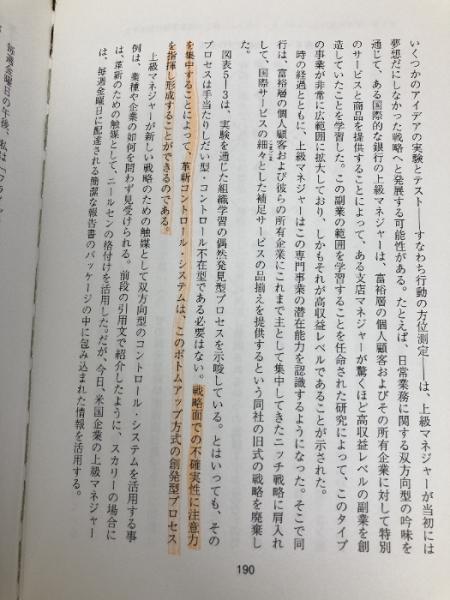 いくつかのアイデアの実験とテスト――すなわち行動の方位測定――は、上級マネジャーが当初には
夢想だにしなかった戦略へと発展する可能性がある。たとえば、日常業務に関する双方向型の吟味を
通じて、ある国際的な銀行の上級マネジャーは、富裕層の個人顧客およびその所有企業に対して特別
のサービスと商品を提供することによって、ある支店マネジャーが驚くほど高収益レベルの副業を創
造していたことを学習した。この副業の範囲を学習することを任命された研究によって、このタイプ
の事業が非常に広範囲に拡大しており、しかもそれが高収益レベルであることが示された。
時の経過とともに、上級マネジャーはこの専門事業の潜在能力を認識するようになった。そこで同
行は、富裕層の個人顧客および彼らの所有企業にこれまで主として集中してきたニッチ戦略に肩入れ
して、国際サービスの細々とした補足サービスの品揃えを提供するという同社の旧式の戦略を廃棄し
た。
図表5―3は、実験を通じた組織学習の偶然発見型プロセスを示唆している。とはいっても、その
プロセスは手当たりしだい型・コントロール不在型である必要はない。戦略面での不確実性に注意力
を集中することによって、革新コントロール・システムは、このボトムアップ方式の創発型プロセス
を指揮し形成することができるのである。
上級マネジャーが新しい戦略のための触媒として双方向型のコントロール・システムを活用する事
例は、業種や企業の如何を問わず見受けられる。前段の引用文で紹介したように、スカリーの場合に
は、革新のための触媒として、ニールセンの格付けを活用した。だが、今日、米国企業の上級マネジャー
は、毎週金曜日に配達される簡潔な報告書のパッケージの中に包み込まれた情報を活用する。
毎週金曜日の午後、私は「フライデ
190